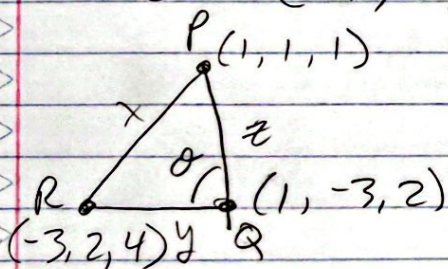 P (1, 1, 1)
x
z
θ
R
(1, -3, 2)
(-3, 2, 4) y
Q